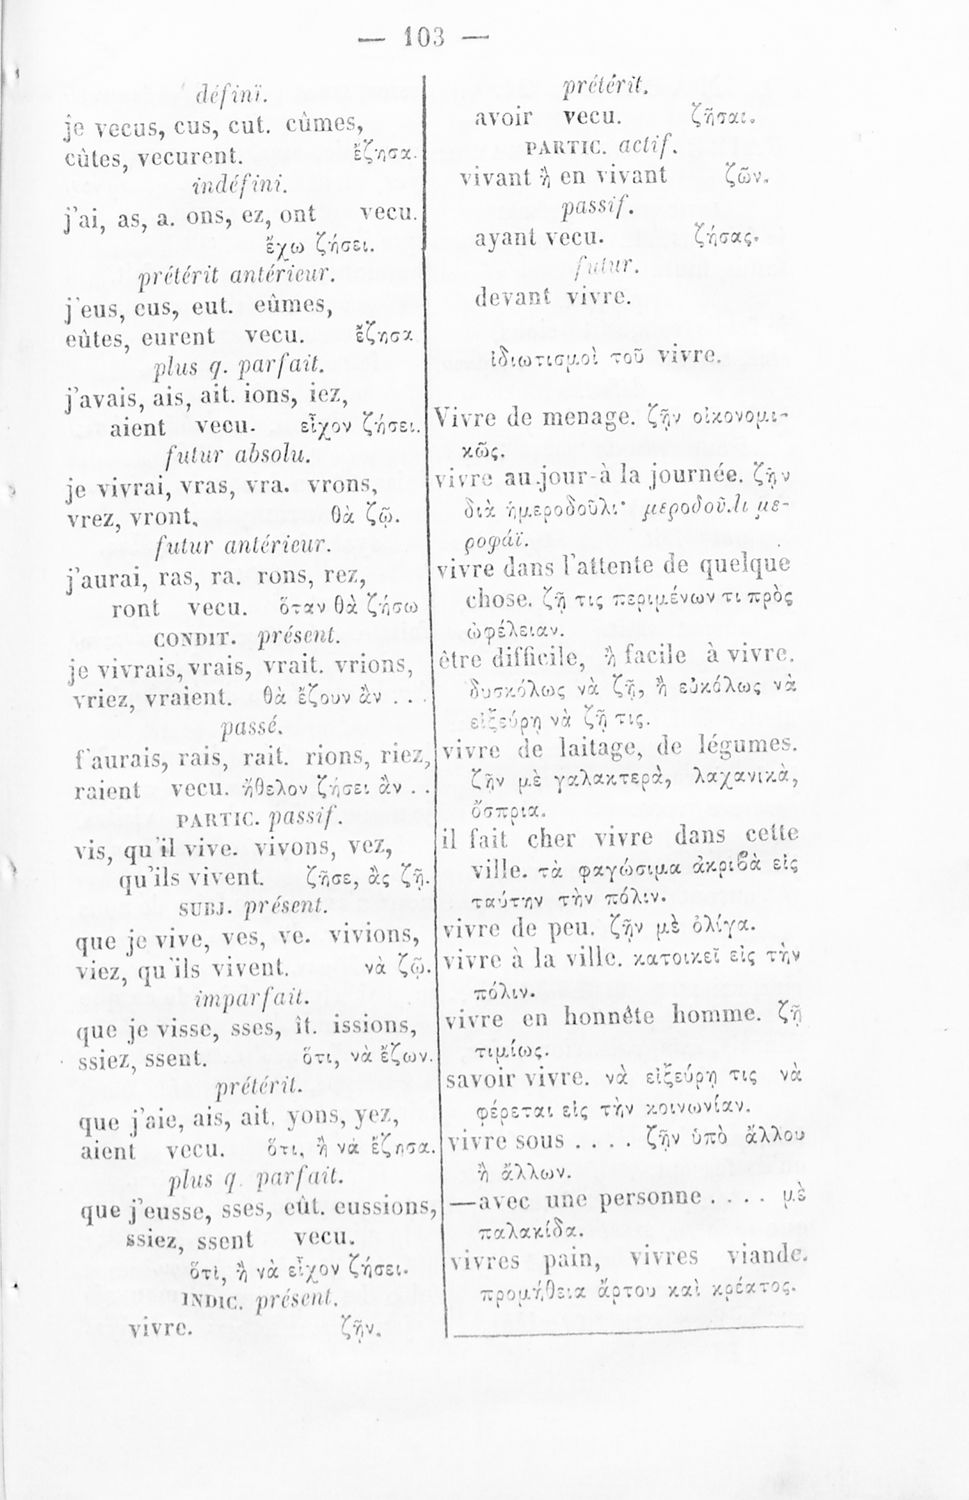 — 103 —
défini.
je vecus, cus, cut. cûmes,
cûtes, vecurent. ἔζησα.
indéfini.
j'ai, as, a. ons, ez, ont vecu.
ἔχω ζήσει.
prétérit antérieur.
j'eus, eus, eut. eûmes,
eûtes, eurent vecu. ἔζησα
plus q. parfait.
j'avais, ais, ait. ions, iez,
aient vecu. εἶχον ζήσει.
futur absolu.
je vivrai, vras, vra. vrons,
vrez, vront. θὰ ζῶ.
futur antérieur.
j'aurai, ras, ra. rons, rez,
ront vecu. ὅταν θὰ ζήσω
CONDIT. présent.
je vivrais, vrais, vrait. vrions,
vriez, vraient. θὰ ἔζουν ἂν . . .
passé.
j'aurais, rais, rait. rions, riez,
raient vecu. ἤθελον ζήσει ἂν . .
PARTIC. passif.
vis, qu'il vive. vivons, vez,
qu'ils vivent. ζῆσε, ἂς ζῇ.
SUBJ. présent.
que je vive, ves, ve. vivions,
viez, qu'ils vivent. νὰ ζῶ.
imparfait.
que je visse, sses, ît. issions,
ssiez, ssent. ὅτι, νὰ ἔζων.
prétérit.
que j'aie, ais, ait. yons, yez,
aient vecu. ὅτι, ἢ νὰ ἔζησα.
plus q. parfait.
que j'eusse, sses, eût. eussions,
ssiez, ssent vecu.
ὅτι, ἢ νὰ εἶχον ζήσει.
INDIC. présent.
vivre. ζῆν.
prétérit.
avoir vecu. ζῆσαι.
PARTIC. actif.
vivant ἢ en vivant ζῶν.
passif.
ayant vecu. ζήσας.
futur.
devant vivre.
ἰδιωτισμοὶ τοῦ vivre.
Vivre de menage. ζῆν οἰκονομι-
κῶς.
vivre au jour-à la journée. ζῆν
διὰ ἡμεροδοῦλι· μεροδοῦλι με-
ροφάϊ.
vivre dans l'attente de quelque
chose. ζῇ τις περιμένων τι πρὸς
ὠφέλειαν.
être difficile, ἢ facile à vivre.
δυσκόλως νὰ ζῇ, ἢ εὐκόλως νὰ
εἰξεύρῃ νὰ ζῇ τις.
vivre de laitage, de légumes.
ζῆν μὲ γαλακτερὰ, λαχανικὰ,
ὄσπρια.
il fait cher vivre dans cette
ville. τὰ φαγώσιμα ἀκριβὰ εἰς
ταύτην τὴν πόλιν.
vivre de peu. ζῆν μὲ ὀλίγα.
vivre à la ville. κατοικεῖ εἰς τὴν
πόλιν.
vivre en honnête homme. ζῇ
τιμίως.
savoir vivre. νὰ εἰξεύρῃ τις νὰ
φέρεται εἰς τὴν κοινωνίαν.
vivre sous . . . . ζῆν ὑπὸ ἄλλου
ἢ ἄλλων.
—avec une personne . . . . μὲ
παλακίδα.
vivres pain, vivres viande.
προμήθεια ἄρτου καὶ κρέατος.